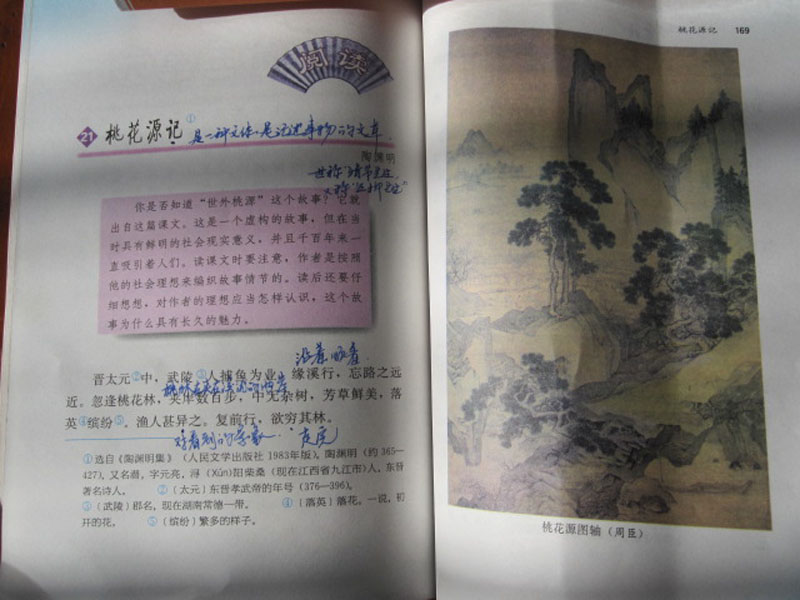 阅读
21 桃花源记① 是一种文体,是记述事物的文章.
陶渊明
世称"靖节先生
又称"五柳先生"
你是否知道“世外桃源”这个故事?它就
出自这篇课文。这是一个虚构的故事,但在当
时具有鲜明的社会现实意义,并且千百年来一
直吸引着人们。读课文时要注意,作者是按照
他的社会理想来编织故事情节的。读后还要仔
细想想,对作者的理想应当怎样认识,这个故
事为什么具有长久的魅力。
沿着
晋太元②中,武陵③人捕鱼为业。缘溪行,忘路之远
近。忽逢桃花林,夹岸数百步,中无杂树,芳草鲜美,落
英④缤纷⑤。渔人甚异之。复前行,欲穷其林。
对看到的景象
①选自《陶渊明集》(人民文学出版社1983年版)。陶渊明(约365—
427),又名潜,字元亮,浔(Xún)阳柴桑(现在江西省九江市)人,东晋
著名诗人。 ②〔太元〕东晋孝武帝的年号(376—396)。
③〔武陵〕郡名,现在湖南常德一带。 ④〔落英〕落花。一说,初
开的花。 ⑤〔缤纷〕繁多的样子。
桃花源记 169
桃花源图轴(周臣)